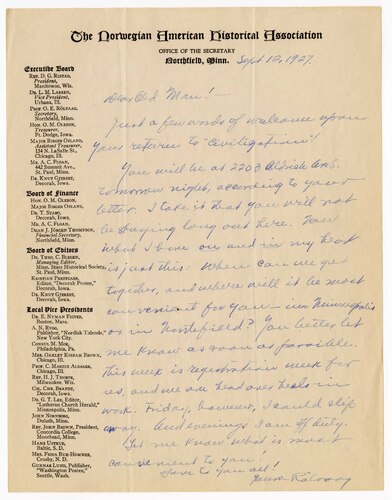 The Norwegian American Historical Association
OFFICE OF THE SECRETARY
Northfield, Minn.
Sept 12, 1927.
Executive Board
REV. D. G. RISTAD,
President,
Manitowoc, Wis.
DR. L. M. LARSEN,
Vice President,
Urbana, Ill.
PROF. O. E. RÖLVAAG,
Secretary,
Northfield, Minn.
HON. O. M. OLESON,
Treasurer,
Ft. Dodge, Iowa.
MAJOR BIRGER OSLAND,
Assistant Treasurer,
134 N. LaSalle St.,
Chicago, Ill.
MR. A. C. FLOAN,
442 Summit Ave.,
St. Paul, Minn.
DR. KNUT GJERSET,
Decorah, Iowa.
Board of Finance
HON. O. M. OLESON,
MAJOR BIRGER OSLAND,
DR. T. STABO,
Decorah, Iowa.
MR. A. C. FLOAN,
DEAN J. JÖRGEN THOMPSON,
Financial Secretary,
Northfield, Minn.
Board of Editors
DR. THEO. C. BLEGEN,
Managing Editor,
Minn. State Historical Society,
St. Paul, Minn.
KRISTIAN PRESTGARD,
Editor, "Decorah Posten,"
Decorah, Iowa.
DR. KNUT GJERSET,
Decorah, Iowa.
Local Vice Presidents
DR. E. NYMAN FIGVED,
Boston, Mass.
A. N. RYGG,
Publisher, "Nordisk Tidende,"
New York City.
CONSUL M. MOE,
Philadelphia, Pa.
MRS. OAKLEY KISSAM BROWN,
Chicago, Ill.
PROF. C. MARTIN ALSAGER,
Chicago, Ill.
REV. H. J. THORPE,
Milwaukee, Wis.
COL. CHR. BRANDT,
Decorah, Iowa.
DR. G. T. LEE, Editor,
"Lutheran Church Herald,"
Minneapolis, Minn.
JOHN NORTHBORG,
Duluth, Minn.
REV. JOHN BROWN, President,
Concordia College,
Moorhead, Minn.
HANS USTRUD,
Baltic, S. D.
MRS. FRIDA BUE-HOMNES,
Crosby, N. D.
GUNNAR LUND, Publisher,
"Washington Posten,"
Seattle, Wash.
Dear Old Man!
Just a few words of welcome upon
your return to "Civilization"!
You will be at 2203 Aldrich Ave S.
tomorrow night, according to your
letter. I take it that you will not
be staying long out here. Now
what I have on and in my heart
is just this: Where can we get
together, and where will it be most
convenient for you — in Minneapolis
or in Northfield? You better let
me know as soon as possible.
This week is registration week for
us, and we are head over heels in
work. Friday, however, I could slip
away. And evenings I am off duty.
Let me know what is most
convenient to you!
Love to you all!
Yours Rölvaag